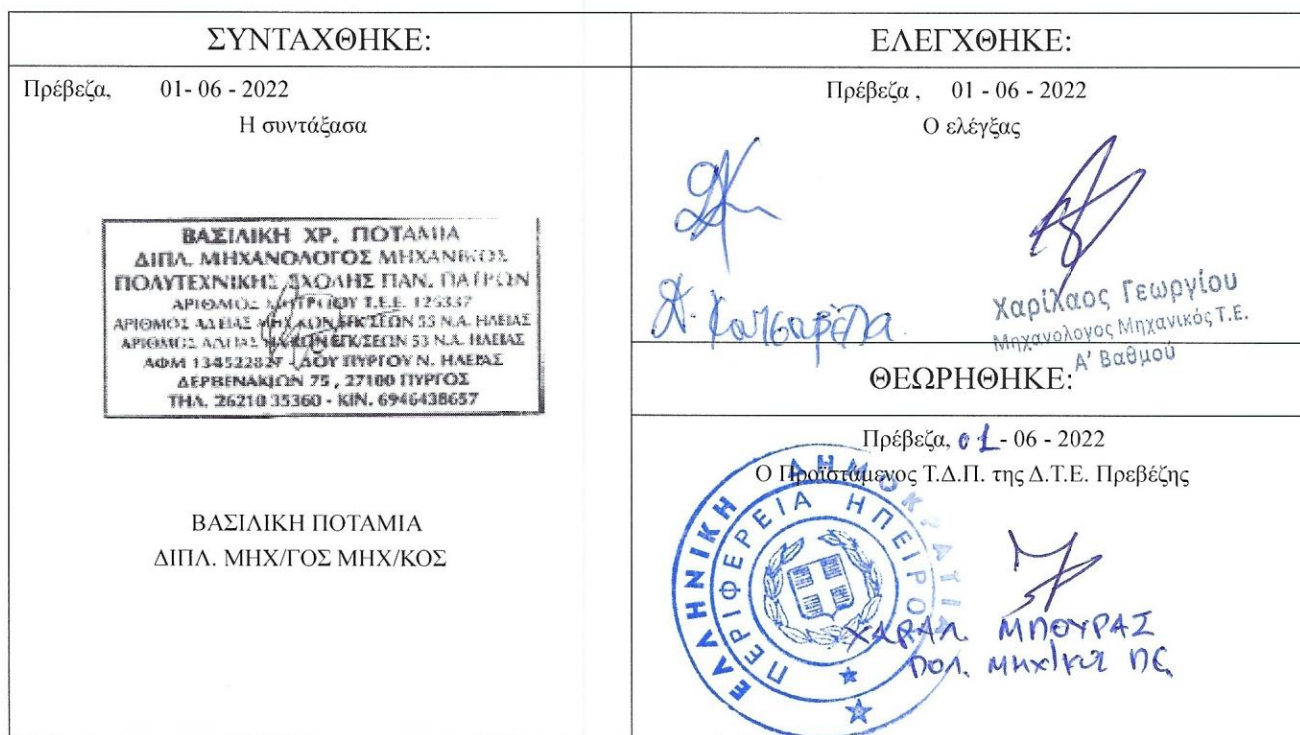 ΣΥΝΤΑΧΘΗΚΕ:
Πρέβεζα, 01- 06 - 2022
Η συντάξασα
ΒΑΣΙΛΙΚΗ ΧΡ. ΠΟΤΑΜΙΑ
ΔΙΠΛ. ΜΗΧΑΝΟΛΟΓΟΣ ΜΗΧΑΝΙΚΟΣ
ΠΟΛΥΤΕΧΝΙΚΗΣ ΣΧΟΛΗΣ ΠΑΝ. ΠΑΤΡΩΝ
ΑΡΙΘΜΟΣ ΜΗΤΡΩΟΥ Τ.Ε.Ε. 125337
ΑΡΙΘΜΟΣ ΑΔΕΙΑΣ ΜΗΧ/ΚΩΝ ΕΓΚ/ΣΕΩΝ 55 Ν.Α. ΗΛΕΙΑΣ
ΑΡΙΘΜΟΣ ΑΔΕΙΑΣ ΕΓΚ/ΣΕΩΝ 53 Ν.Α. ΗΛΕΙΑΣ
ΑΦΜ 134522827 - ΔΟΥ ΠΥΡΓΟΥ Ν. ΗΛΕΙΑΣ
ΔΕΡΒΕΝΑΚΙΩΝ 75 , 27100 ΠΥΡΓΟΣ
ΤΗΛ. 26210 35360 - ΚΙΝ. 6946438657
ΒΑΣΙΛΙΚΗ ΠΟΤΑΜΙΑ
ΔΙΠΛ. ΜΗΧ/ΓΟΣ ΜΗΧ/ΚΟΣ
ΕΛΕΓΧΘΗΚΕ:
Πρέβεζα , 01 - 06 - 2022
Ο ελέγξας
Χαρίλαος Γεωργίου
Μηχανολογος Μηχανικός Τ.Ε.
Α' Βαθμού
ΘΕΩΡΗΘΗΚΕ:
Πρέβεζα, 01 - 06 - 2022
Ο Προϊστάμενος Τ.Δ.Π. της Δ.Τ.Ε. Πρεβέζης
ΕΛΛΗΝΙΚΗ ΔΗΜΟΚΡΑΤΙΑ
ΠΕΡΙΦΕΡΕΙΑ ΗΠΕΙΡΟΥ
ΧΑΡΑΛ. ΜΠΟΥΡΑΣ
ΠΟΛ. ΜΗΧ/ΚΟΣ ΠΕ